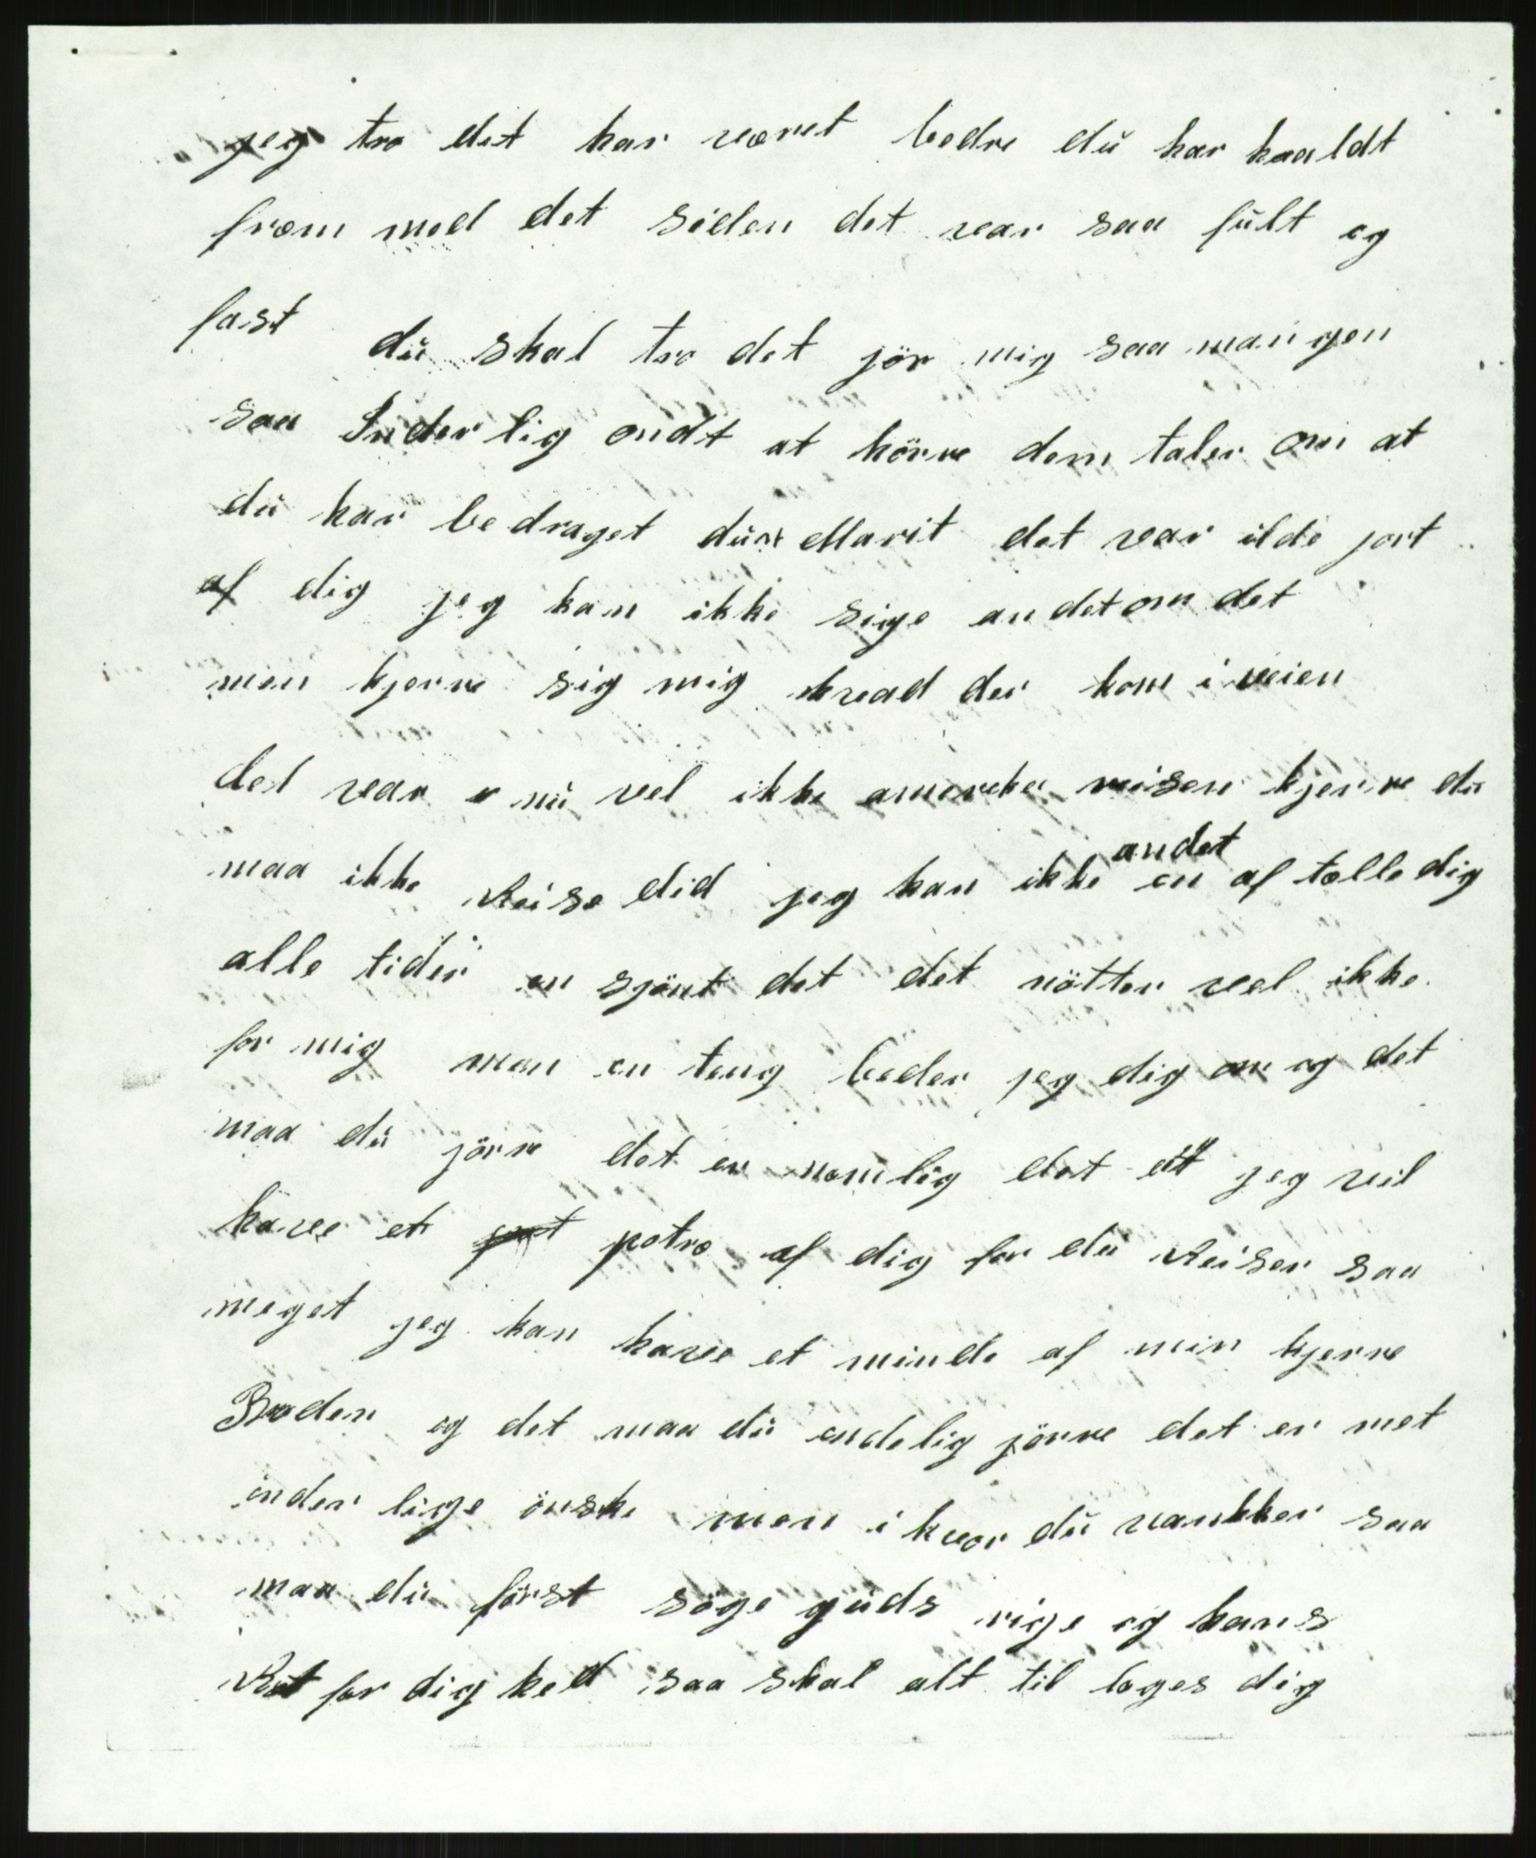 jeg tro det har været bedre du har haaldt
from med det siden det var saa fult og
fast du skal tro det jör mig saa mangen
saa Inderlig ondt at hörre dem taler om at
du har bedraget dùn Marit det var ilde jort
af dig jeg kan ikke sige andet om det
men kjerre sig mig hvad der kom i veien
det var nù vel ikke amereka reisen kjerre du
maa ikke Reise did jeg kan ikke andet en af tolle dig
alle tider en sjönt det det nötter vel ikke
for mig men en teng beder jeg dig om og det
maa du jörre det er nomlig det at jeg vil
have et potro af dig for du Reiser saa
meget jeg kan have et minde af min kjerre
Broder og det maa du endelig jörre det er met
inder lige önske men i hvor du vankker saa
maa du först söge guds rige og hans
Ret for dig hed saa skal alt til loges dig